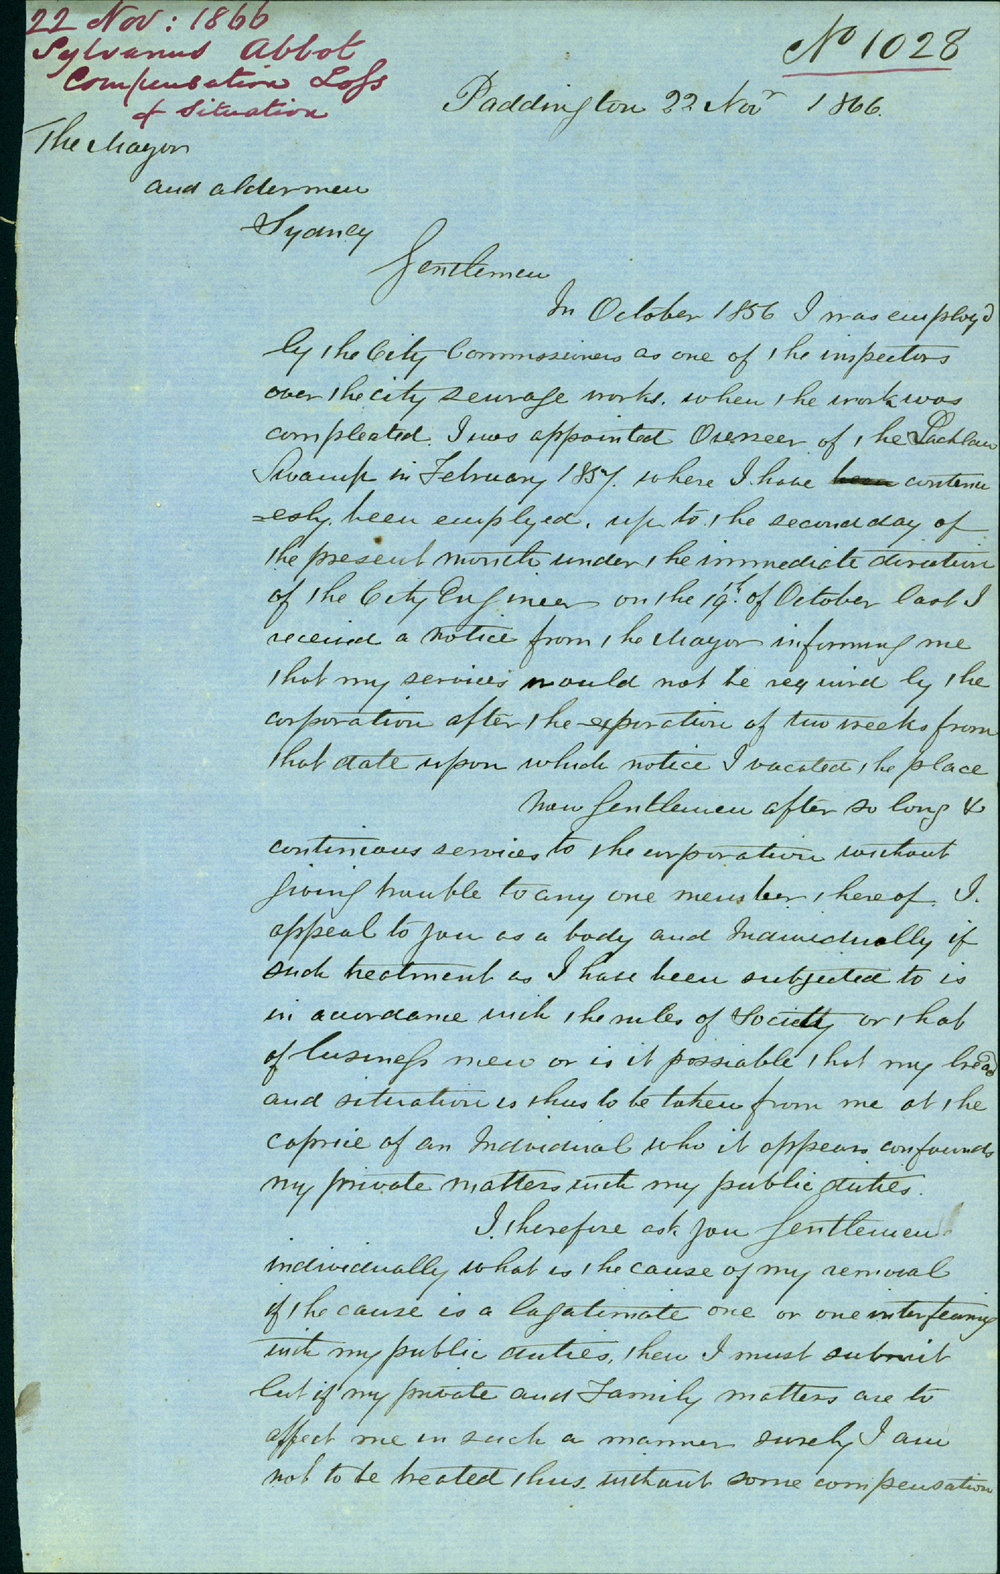 22 Nov: 1866
Sylvanus Abbot
Compensation Loss
of situation
No 1028
Paddington 22 Novr 1866.
The Mayor
and aldermen
Sydney
Gentlemen
In October 1856 I was employd
by the City Commssioners as one of the inspectors
over the city sewrage works. when the work was
compleated. I was appointed Overseer of the Lachlan
Swamp in February 1857. where I have been contenu
=esly. been emplyed. up to the second day of
the present month under the immediate direction
of the City Engineer on the 19th of October last I
received a notice from the Mayor informing me
that my services would not be required by the
corporation after the exporation of two weeks from
that date upon which notice I vacated the place
Now Gentlemen after so long &
continious services to the corporation without
giving trouble to any one member thereof. I.
appeal to you as a body and Individually if
such treatment as I have been subjected to is
in accordance with the rules of Society or that
of business men or is it possiable that my bread
and situation is thus to be taken from me at the
caprice of an Individual who it appears confounds
my private matters with my public duties.
I. therefore ask you Gentlemen
individually what is the cause of my removal
if the cause is a lagatimate one or one interfearing
with my public duties, then I must submit
but if my private and Family matters are to
affect me in such a manner surely I am
not to be treated thus. without some compensation